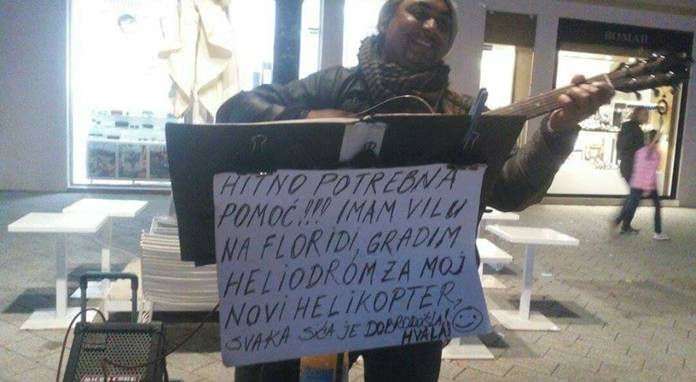 BOMAR
HITNO POTREBNA
POMOĆ!!! IMAM VILU
NA FLORIDI, GRADIM
HELIODROM ZA MOJ
NOVI HELIKOPTER,
SVAKA SĆA JE DOBRODOŠLA!
HVALA!